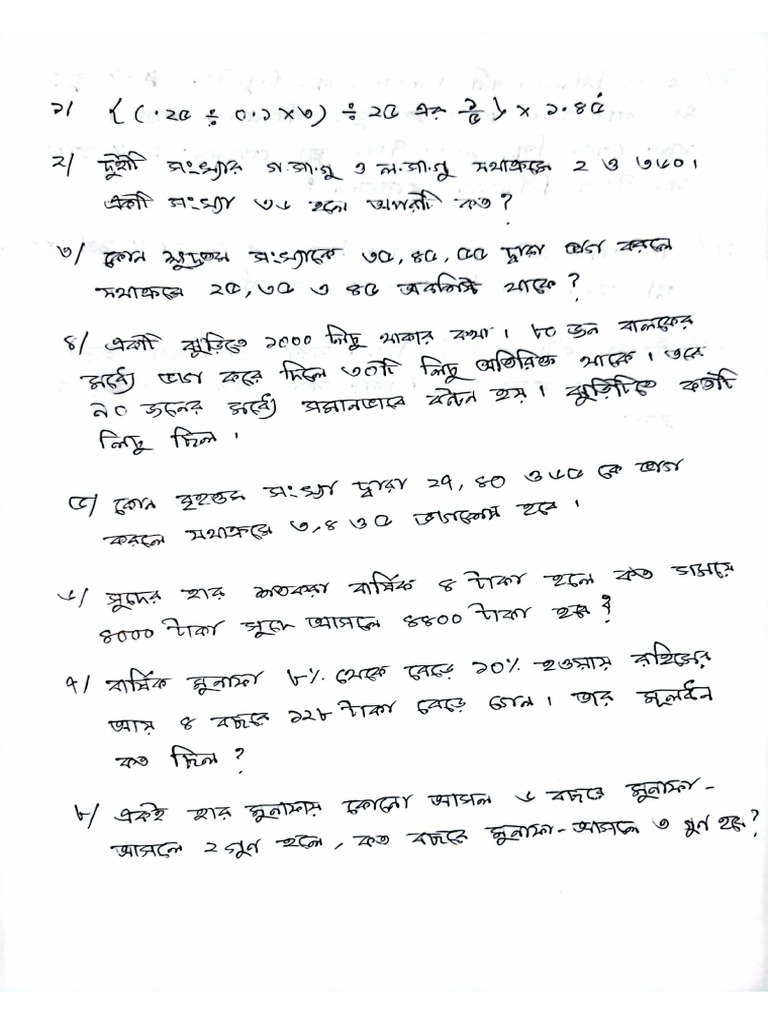 ১/ { (.২৫ ÷ ০.১ × ৬) ÷ ২৫ এর ১/৫ } × ১.৪৫̇
২/ দুইটি সংখ্যার গ.সা.গু ও ল.সা.গু যথাক্রমে ২ ও ৩৬০।
একটি সংখ্যা ৩৬ হলে অপরটি কত?
৩/ কোন ক্ষুদ্রতম সংখ্যাকে ৩৫, ৪৫, ৫৫ দ্বারা ভাগ করলে
যথাক্রমে ২৫, ৩৫ ও ৪৫ অবশিষ্ট থাকে?
৪/ একটি ঝুড়িতে ১০০০ লিচু থাকার কথা। ৮০ জন বালকের
মধ্যে ভাগ করে দিলে ৩০টি লিচু অতিরিক্ত থাকে। তবে
৯০ জনের মধ্যে সমানভাবে বন্টন হয়। ঝুড়িটিতে কতটি
লিচু ছিল।
৫/ কোন বৃহত্তম সংখ্যা দ্বারা ২৭, ৪০ ও ৬৫ কে ভাগ
করলে যথাক্রমে ৩, ৪ ও ৫ ভাগশেষ হবে।
৬/ সুদের হার শতকরা বার্ষিক ৪ টাকা হলে কত সময়ে
৪০০০ টাকা সুদে আসলে ৪৪০০ টাকা হবে?
৭/ বার্ষিক মুনাফা ৮% থেকে বেড়ে ১০% হওয়ায় রহিমের
আয় ৪ বছরে ১২৮ টাকা বেড়ে গেল। তার মূলধন
কত ছিল?
৮/ একই হার মুনাফায় কোনো আসল ৬ বছরে মুনাফা-
আসলে ২ গুণ হলে, কত বছরে মুনাফা-আসলে ৩ গুণ হবে?